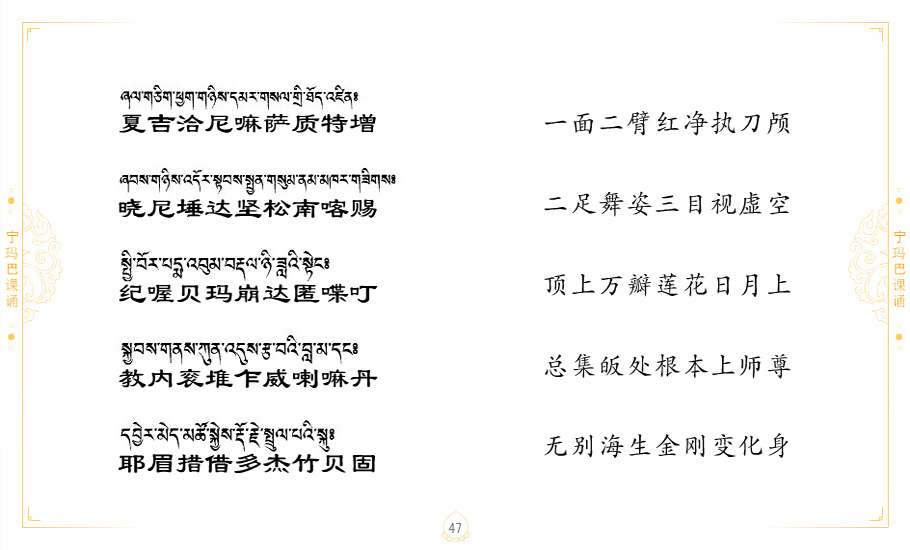 ཞལ་གཅིག་ཕྱག་གཉིས་དམར་གསལ་གྲི་ཐོད་འཛིན༔
夏吉洽尼嘛萨质特增
一面二臂红净执刀颅
ཞབས་གཉིས་འདོར་སྟབས་སྤྱན་གསུམ་ནམ་མཁར་གཟིགས༔
晓尼埵达坚松南喀赐
二足舞姿三目视虚空
སྤྱི་བོར་པདྨ་འབུམ་བརྡལ་ཉི་ཟླའི་སྟེང༔
纪喔贝玛崩达匿喋叮
顶上万瓣莲花日月上
སྐྱབས་གནས་ཀུན་འདུས་རྩ་བའི་བླ་མ་དང༔
教内衮堆乍威喇嘛丹
总集皈处根本上师尊
དབྱེར་མེད་མཚོ་སྐྱེས་རྡོ་རྗེ་སྤྲུལ་པའི་སྐུ༔
耶眉措借多杰竹贝固
无别海生金刚变化身
宁玛巴课诵
宁玛巴课诵
47